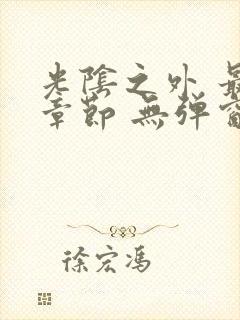 光陰之外 最
章節 無弹窗
徐宏馮